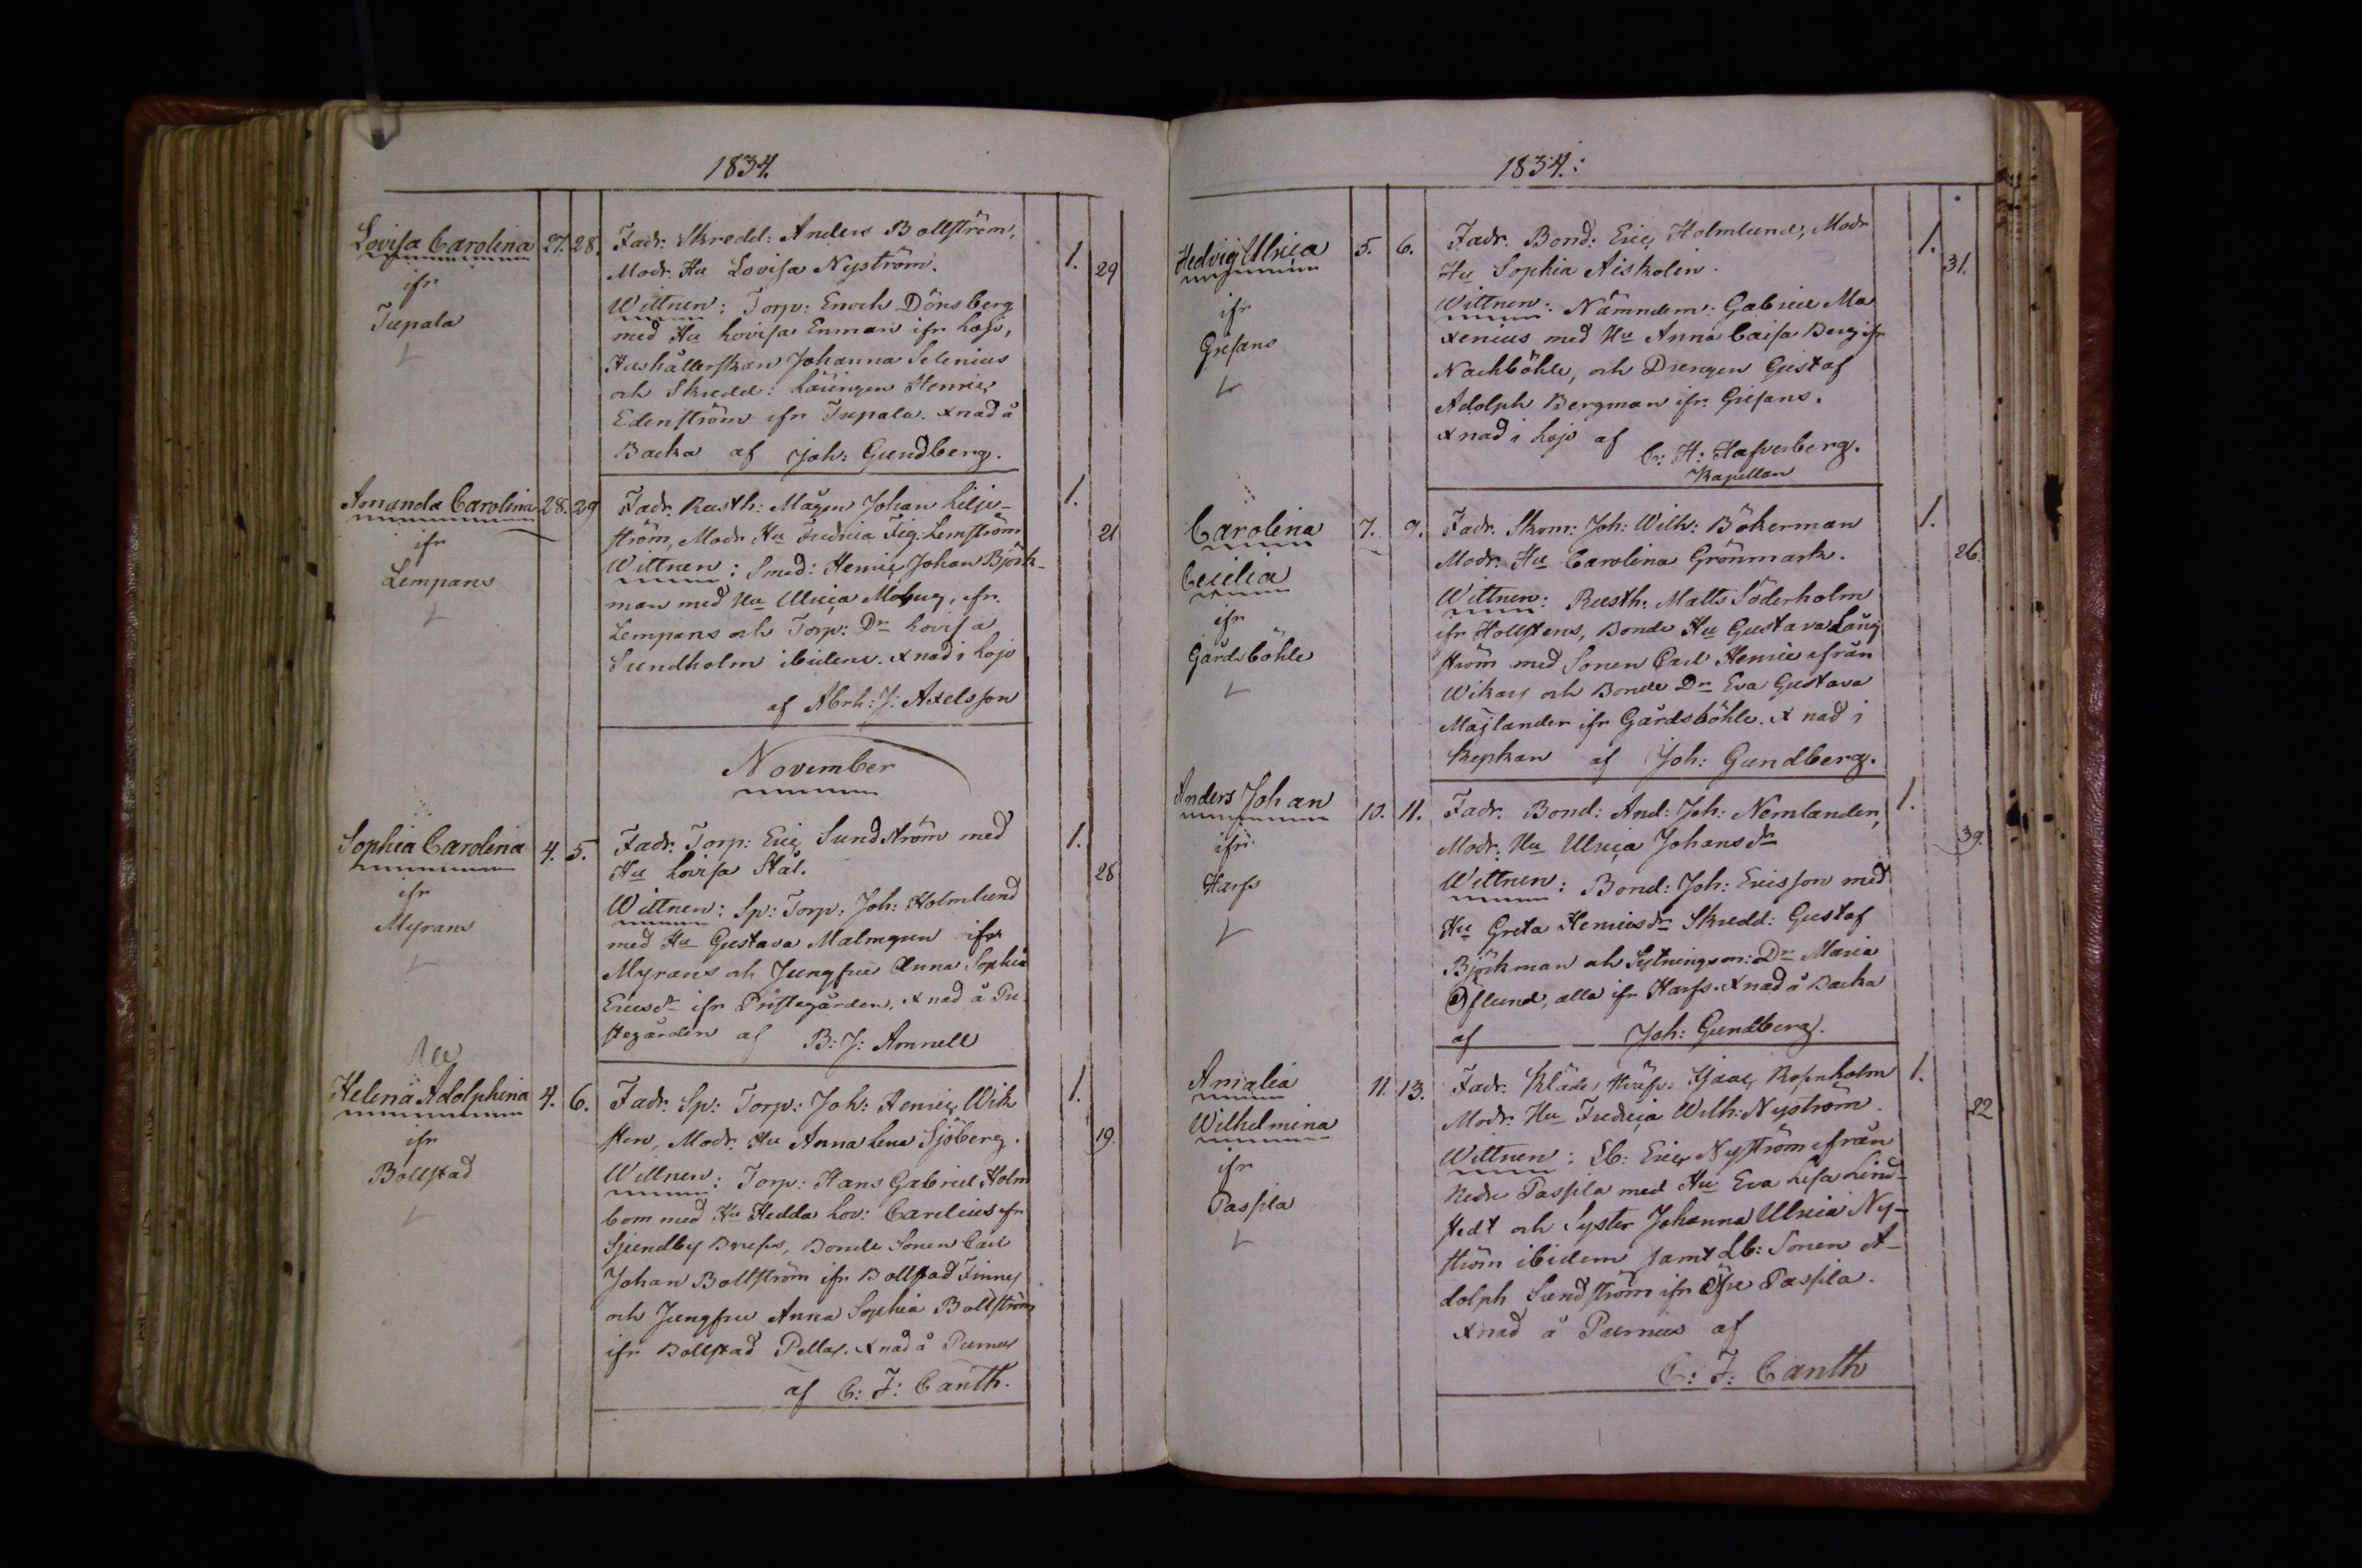 1834.
Lovisa Carolina 27. 28. Fadr. Skredd: Anders Bollström, 1. 29
Modr. Hu Lovisa Nyström.
ifr
Wittnen: Torp: Enoch Dönsberg
Tupala
med Hu Lovisa Enman ifr Lojo,
Hushållerskan Johanna Selenius
och Skredd: Lärlingen Henric
Edenström ifr Tupala. Xnad å
Backa af Joh: Gundberg.
Amanda Carolina 28. 29 Fadr. Rusth: Mågen Johan Lilje- 1. 21
ström, Modr Hu Fredrica Lemström
ifr
Wittnen: Smed: Henric Johan Björk-
Lempans
man med Hu Ulrica Moberg, ifr.
Lempans och Torp: Dr Lovisa
Sundholm ibidem. Xnad i Lojo
af Abrh: J: Axelsson
November
Sophia Carolina 4. 5. Fadr. Torp: Eric Sundström med 1. 28
Hu Lovisa Stål.
ifr
Wittnen: Sp: Torp: Joh: Holmlund
Myrans
med Hu Gustava Malmgren ifr
Myrans och Jungfru Anna Sophia
Ericsdr ifr Prestegården. Xnad å Pre-
stegården af B: J: Amnell
Helena Adolphina 4. 6. Fadr. Sp: Torp: Joh: Henric Wik 1. 19.
sten, Modr. Hu Anna Lena Sjöberg.
ifr
Wittnen: Torp: Hans Gabriel Holm
Bollstad
bom med Hu Hedda Lov: Carelius ifr
Sjundby Bonde Sonen Carl
Johan Bollström ifr Bollstad Finnes
och Jungfru Anna Sophia Bollström
ifr Bollstad Pellas. Xnad å Purnus
af C: F: Canth.
1834.:
Hedvig Ulrica 5. 6. Fadr. Bond: Eric Holmlund, Modr 1. 31.
Hu Sophia Aiskolin.
ifr
Wittnen: Nämndem: Gabriel Ma
Grefans
xenius med Hu Anna Caisa Berg ifr
Nackböhle, och Drengen Gustaf
Adolph Bergman ifr. Grefans.
Xnad i Lojo af
C: H: Hafverberg.
Kapellan
Carolina 7. 9. Fadr. Skom: Joh: Wilh: Bökerman 1. 26.
Modr. Hu Carolina Grönmark.
Cecilia
Wittnen: Rusth: Matts Söderholm
ifr
ifr Hollstens, Bonde Hu Gustava Lång
Gårdsböhle
ström med Sonen Carl Henric ifrån
Wikars och Bonde Dr Eva Gustava
Majlander ifr Gårdsböhle. Xnad i
Kyrkan af Joh: Gundberg.
Anders Johan 10. 11. Fadr. Bond: And: Joh: Nomlander, 1. 39.
Modr. Hu Ulrica Johansdr
ifr
Wittnen: Bond: Joh: Ericsson med
Harfs
Hu Greta Henricsdr Skredd: Gustaf
Björkman och Sytningsm: Dr Maria
Öflund, alla ifr Harfs. Xnad å Backa
af Joh: Gundberg.
Amalia 11. 13. Fadr. Kläde Isaac Rosenholm 1. 22
Modr. Hu Fredrica Wilh: Nyström.
Wilhelmina
Wittnen: Lb: Eric Nyström ifrån
ifr
Nedre Paspla med Hu Eva Lisa Lind-
Paspla
stedt och Syster Johanna Ulrica Ny-
ström ibidem samt Lb: Sonen A-
dolph Sundström ifr Öfre Paspla.
Xnad å Purnus af
C: F: Canth